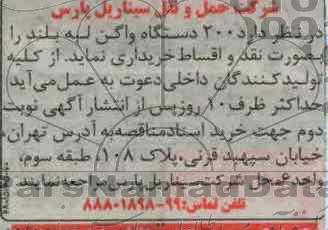 شرکت حمل و نقل سیناریل پارس
در نظر دارد ۲۰۰ دستگاه واگن لبه بلند را
بصورت نقد و اقساط خریداری نماید. از کلیه
تولیدکنندگان داخلی دعوت به عمل می آید
حداکثر ظرف ۱۰ روز پس از انتشار آگهی نوبت
دوم جهت خرید اسناد مناقصه به آدرس تهران،
خیابان سپهبد قرنی، پلاک ۱۰۸، طبقه سوم،
واحد ۶ محل شرکت سیناریل پارس مراجعه نمایند.
تلفن تماس: ۹۹-۸۸۸۰۱۸۹۸